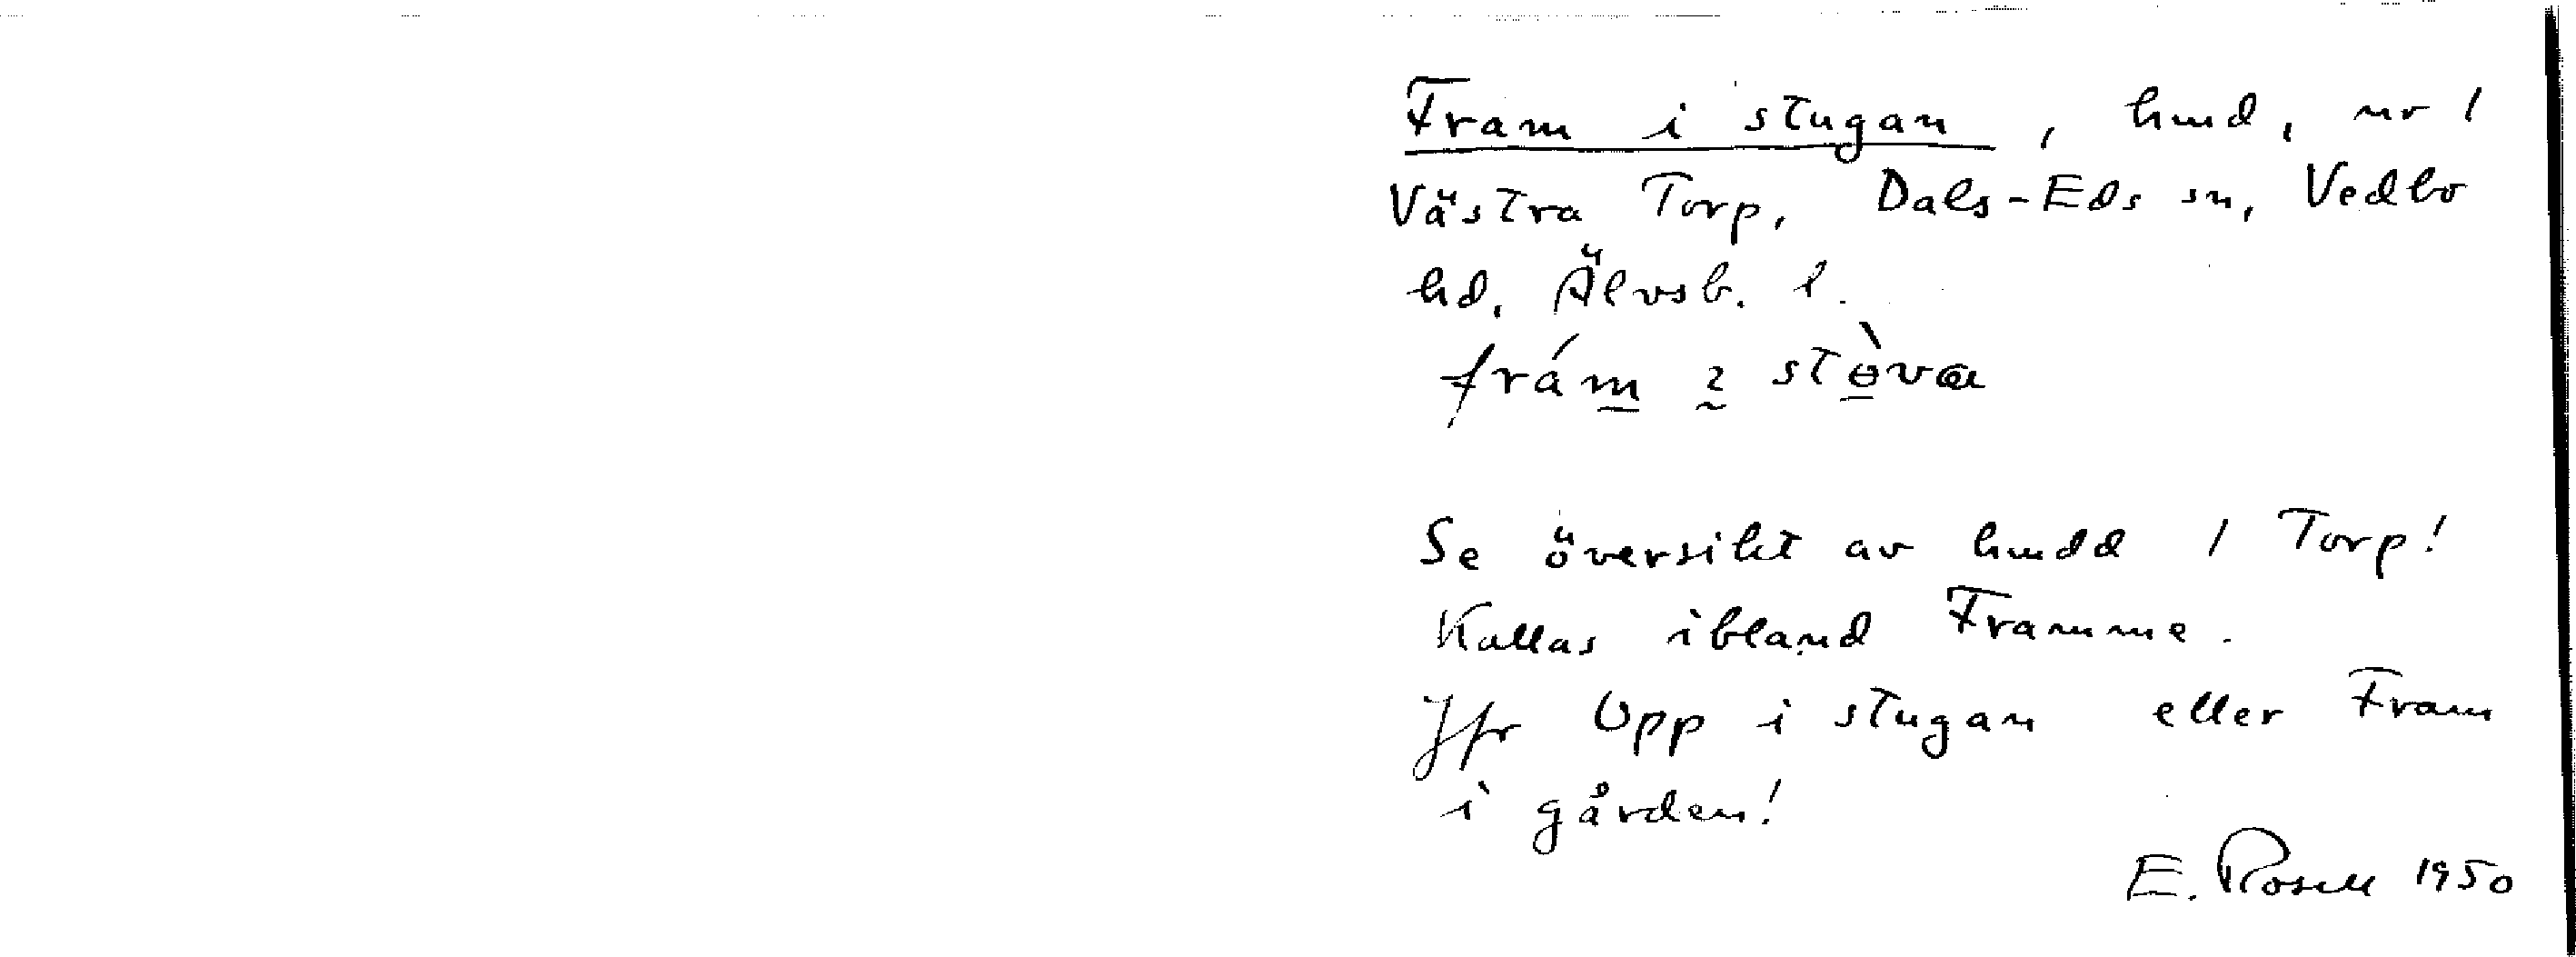 Fram i stugan, hmd, nr 1
Västra Torp, Dals-Eds sn, Vedbo
hd, Älvsb. l.
fram̲ ɩ stө̲̀va
Se översikt av hmdd 1 Torp!
Kallas ibland Framme.
Jfr Upp i stugan eller Fram
i gården!
E. Rosell 1950